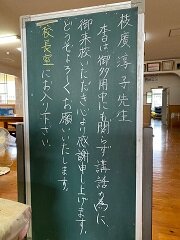 枝廣淳子先生
本日は御多用中にも関らず講話の為に、
御来校いただき心より感謝申し上げます。
どうぞよろしくお願いいたします。
校長室にお入り下さい。